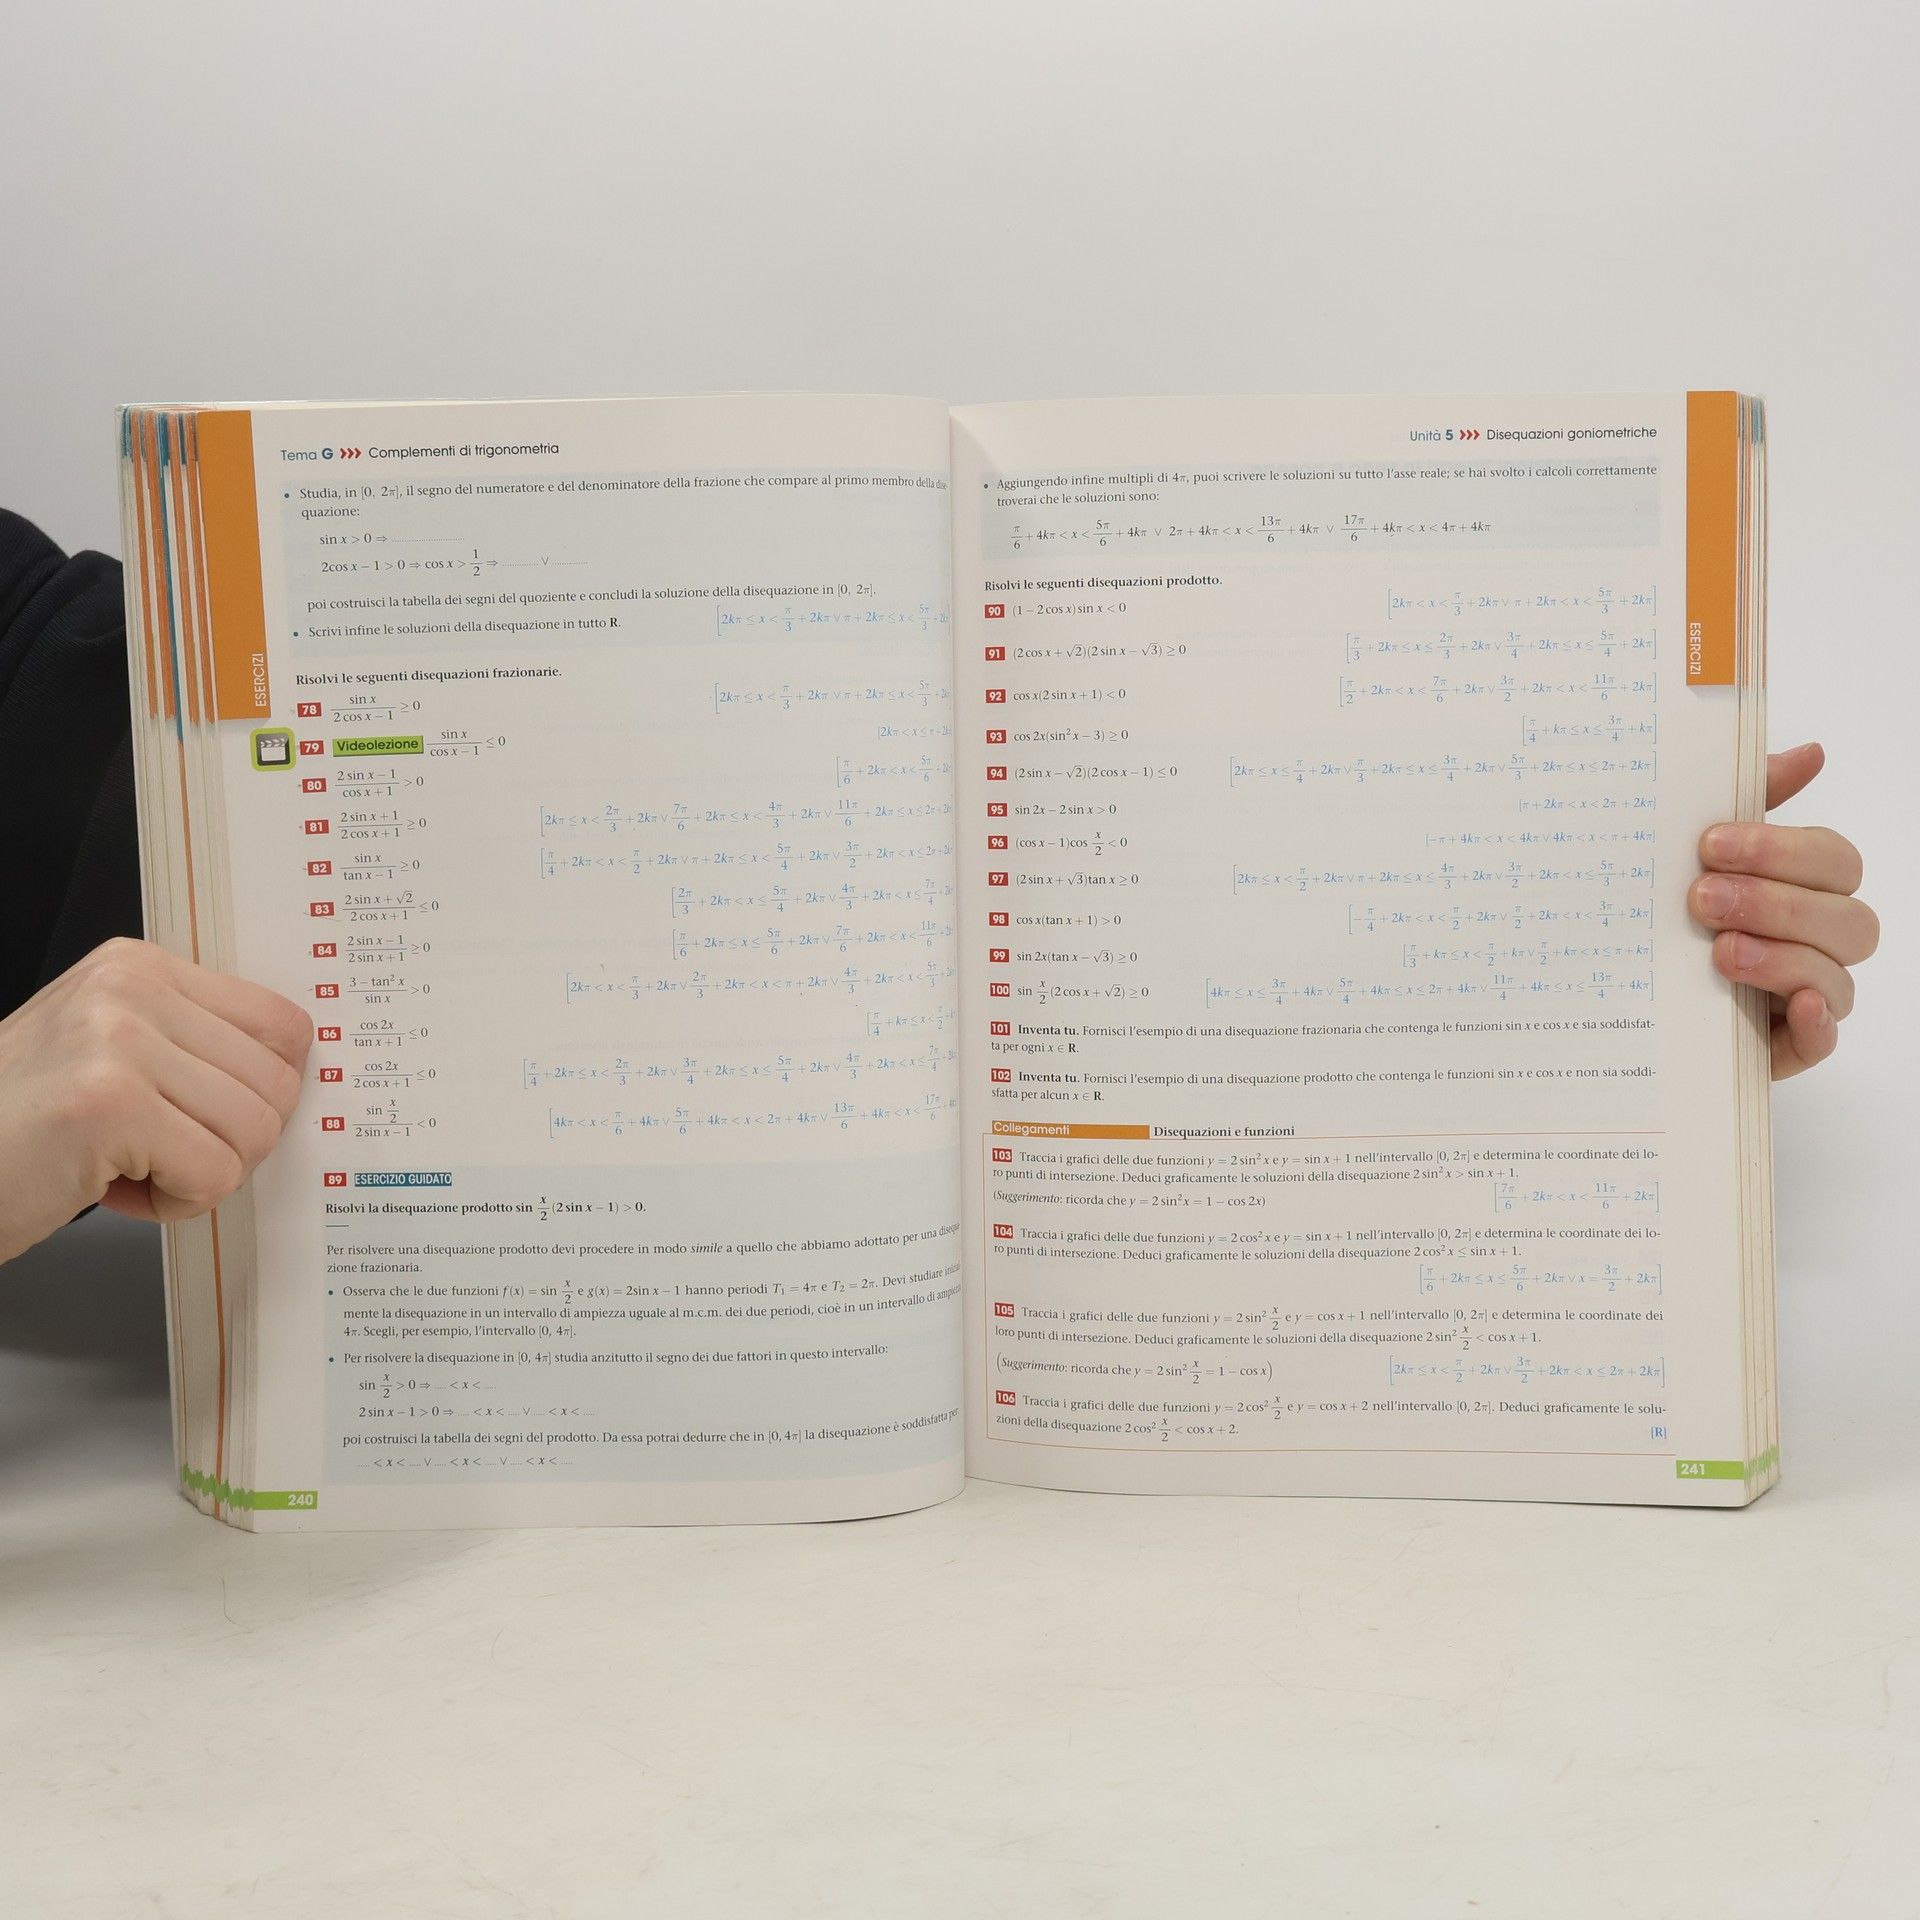 Tema G >>> Complementi di trigonometria
• Studia, in [0, 2π], il segno del numeratore e del denominatore della frazione che compare al primo membro della dise-
quazione:
sin x > 0 ⇒ ..........
2cos x − 1 > 0 ⇒ cos x > 1/2 ⇒ .......... ∨ ..........
poi costruisci la tabella dei segni del quoziente e concludi la soluzione della disequazione in [0, 2π].
• Scrivi infine le soluzioni della disequazione in tutto R. [2kπ ≤ x < π/3 + 2kπ ∨ π + 2kπ ≤ x < 5π/3 + 2k
ESERCIZI
Risolvi le seguenti disequazioni frazionarie.
78 sin x / (2 cos x − 1) ≥ 0 [2kπ ≤ x < π/3 + 2kπ ∨ π + 2kπ ≤ x < 5π/3 + 2k
79 Videolezione sin x / (cos x − 1) ≤ 0 [2kπ < x ≤ π + 2k
80 (2 sin x − 1) / (cos x + 1) > 0 [π/6 + 2kπ < x < 5π/6 + 2k
81 (2 sin x + 1) / (2 cos x + 1) ≥ 0 [2kπ ≤ x < 2π/3 + 2kπ ∨ 7π/6 + 2kπ ≤ x < 4π/3 + 2kπ ∨ 11π/6 + 2kπ ≤ x ≤ 2π + 2k
82 sin x / (tan x − 1) ≥ 0 [π/4 + 2kπ < x < π/2 + 2kπ ∨ π + 2kπ ≤ x < 5π/4 + 2kπ ∨ 3π/2 + 2kπ < x ≤ 2π + 2k
83 (2 sin x + √2) / (2 cos x + 1) ≤ 0 [2π/3 + 2kπ < x ≤ 5π/4 + 2kπ ∨ 4π/3 + 2kπ < x ≤ 7π/4 + 2k
84 (2 sin x − 1) / (2 sin x + 1) ≥ 0 [π/6 + 2kπ ≤ x ≤ 5π/6 + 2kπ ∨ 7π/6 + 2kπ < x < 11π/6 + 2k
85 (3 − tan² x) / sin x > 0 [2kπ < x < π/3 + 2kπ ∨ 2π/3 + 2kπ < x < π + 2kπ ∨ 4π/3 + 2kπ < x < 5π/3 + 2k
86 cos 2x / (tan x + 1) ≤ 0 [π/4 + kπ ≤ x < π/2
87 cos 2x / (2 cos x + 1) ≤ 0 [π/4 + 2kπ ≤ x < 2π/3 + 2kπ ∨ 3π/4 + 2kπ ≤ x ≤ 5π/4 + 2kπ ∨ 4π/3 + 2kπ < x ≤ 7π/4 + 2k
88 sin x/2 / (2 sin x − 1) < 0 [4kπ < x < π/6 + 4kπ ∨ 5π/6 + 4kπ < x < 2π + 4kπ ∨ 13π/6 + 4kπ < x < 17π/6
89 ESERCIZIO GUIDATO
Risolvi la disequazione prodotto sin x/2 (2 sin x − 1) > 0.
Per risolvere una disequazione prodotto devi procedere in modo simile a quello che abbiamo adottato per una disequa
zione frazionaria.
• Osserva che le due funzioni f(x) = sin x/2 e g(x) = 2sin x − 1 hanno periodi T₁ = 4π e T₂ = 2π. Devi studiare inizial
mente la disequazione in un intervallo di ampiezza uguale al m.c.m. dei due periodi, cioè in un intervallo di ampiezza
4π. Scegli, per esempio, l'intervallo [0, 4π].
• Per risolvere la disequazione in [0, 4π] studia anzitutto il segno dei due fattori in questo intervallo:
sin x/2 > 0 ⇒ .... < x < ....
2 sin x − 1 > 0 ⇒ .... < x < .... ∨ .... < x < ....
poi costruisci la tabella dei segni del prodotto. Da essa potrai dedurre che in [0, 4π] la disequazione è soddisfatta per
.... < x < .... ∨ .... < x < .... ∨ .... < x < ....
240
Unità 5 >>> Disequazioni goniometriche
• Aggiungendo infine multipli di 4π, puoi scrivere le soluzioni su tutto l'asse reale; se hai svolto i calcoli correttamente
troverai che le soluzioni sono:
π/6 + 4kπ < x < 5π/6 + 4kπ ∨ 2π + 4kπ < x < 13π/6 + 4kπ ∨ 17π/6 + 4kπ < x < 4π + 4kπ
Risolvi le seguenti disequazioni prodotto.
90 (1 − 2 cos x) sin x < 0 [2kπ < x < π/3 + 2kπ ∨ π + 2kπ < x < 5π/3 + 2kπ]
91 (2 cos x + √2)(2 sin x − √3) ≥ 0 [π/3 + 2kπ ≤ x ≤ 2π/3 + 2kπ ∨ 3π/4 + 2kπ ≤ x ≤ 5π/4 + 2kπ]
92 cos x(2 sin x + 1) < 0 [π/2 + 2kπ < x < 7π/6 + 2kπ ∨ 3π/2 + 2kπ < x < 11π/6 + 2kπ]
93 cos 2x(sin² x − 3) ≥ 0 [π/4 + kπ ≤ x ≤ 3π/4 + kπ]
94 (2 sin x − √2)(2 cos x − 1) ≤ 0 [2kπ ≤ x ≤ π/4 + 2kπ ∨ π/3 + 2kπ ≤ x ≤ 3π/4 + 2kπ ∨ 5π/3 + 2kπ ≤ x ≤ 2π + 2kπ]
95 sin 2x − 2 sin x > 0 [π + 2kπ < x < 2π + 2kπ]
96 (cos x − 1)cos x/2 < 0 [−π + 4kπ < x < 4kπ ∨ 4kπ < x < π + 4kπ]
97 (2 sin x + √3)tan x ≥ 0 [2kπ ≤ x < π/2 + 2kπ ∨ π + 2kπ ≤ x ≤ 4π/3 + 2kπ ∨ 3π/2 + 2kπ < x ≤ 5π/3 + 2kπ]
98 cos x(tan x + 1) > 0 [−π/4 + 2kπ < x < π/2 + 2kπ ∨ π/2 + 2kπ < x < 3π/4 + 2kπ]
99 sin 2x(tan x − √3) ≥ 0 [π/3 + kπ ≤ x < π/2 + kπ ∨ π/2 + kπ < x ≤ π + kπ]
100 sin x/2 (2 cos x + √2) ≥ 0 [4kπ ≤ x ≤ 3π/4 + 4kπ ∨ 5π/4 + 4kπ ≤ x ≤ 2π + 4kπ ∨ 11π/4 + 4kπ ≤ x ≤ 13π/4 + 4kπ]
101 Inventa tu. Fornisci l'esempio di una disequazione frazionaria che contenga le funzioni sin x e cos x e sia soddisfat-
ta per ogni x ∈ R.
102 Inventa tu. Fornisci l'esempio di una disequazione prodotto che contenga le funzioni sin x e cos x e non sia soddi-
sfatta per alcun x ∈ R.
Collegamenti Disequazioni e funzioni
103 Traccia i grafici delle due funzioni y = 2 sin² x e y = sin x + 1 nell'intervallo [0, 2π] e determina le coordinate dei lo-
ro punti di intersezione. Deduci graficamente le soluzioni della disequazione 2 sin² x > sin x + 1.
(Suggerimento: ricorda che y = 2 sin²x = 1 − cos 2x) [7π/6 + 2kπ < x < 11π/6 + 2kπ]
104 Traccia i grafici delle due funzioni y = 2 cos² x e y = sin x + 1 nell'intervallo [0, 2π] e determina le coordinate dei lo-
ro punti di intersezione. Deduci graficamente le soluzioni della disequazione 2 cos² x ≤ sin x + 1.
[π/6 + 2kπ ≤ x ≤ 5π/6 + 2kπ ∨ x = 3π/2 + 2kπ]
105 Traccia i grafici delle due funzioni y = 2 sin² x/2 e y = cos x + 1 nell'intervallo [0, 2π] e determina le coordinate dei
loro punti di intersezione. Deduci graficamente le soluzioni della disequazione 2 sin² x/2 < cos x + 1.
(Suggerimento: ricorda che y = 2 sin² x/2 = 1 − cos x) [2kπ ≤ x < π/2 + 2kπ ∨ 3π/2 + 2kπ < x ≤ 2π + 2kπ]
106 Traccia i grafici delle due funzioni y = 2 cos² x/2 e y = cos x + 2 nell'intervallo [0, 2π]. Deduci graficamente le solu-
zioni della disequazione 2 cos² x/2 < cos x + 2. [R]
ESERCIZI
241